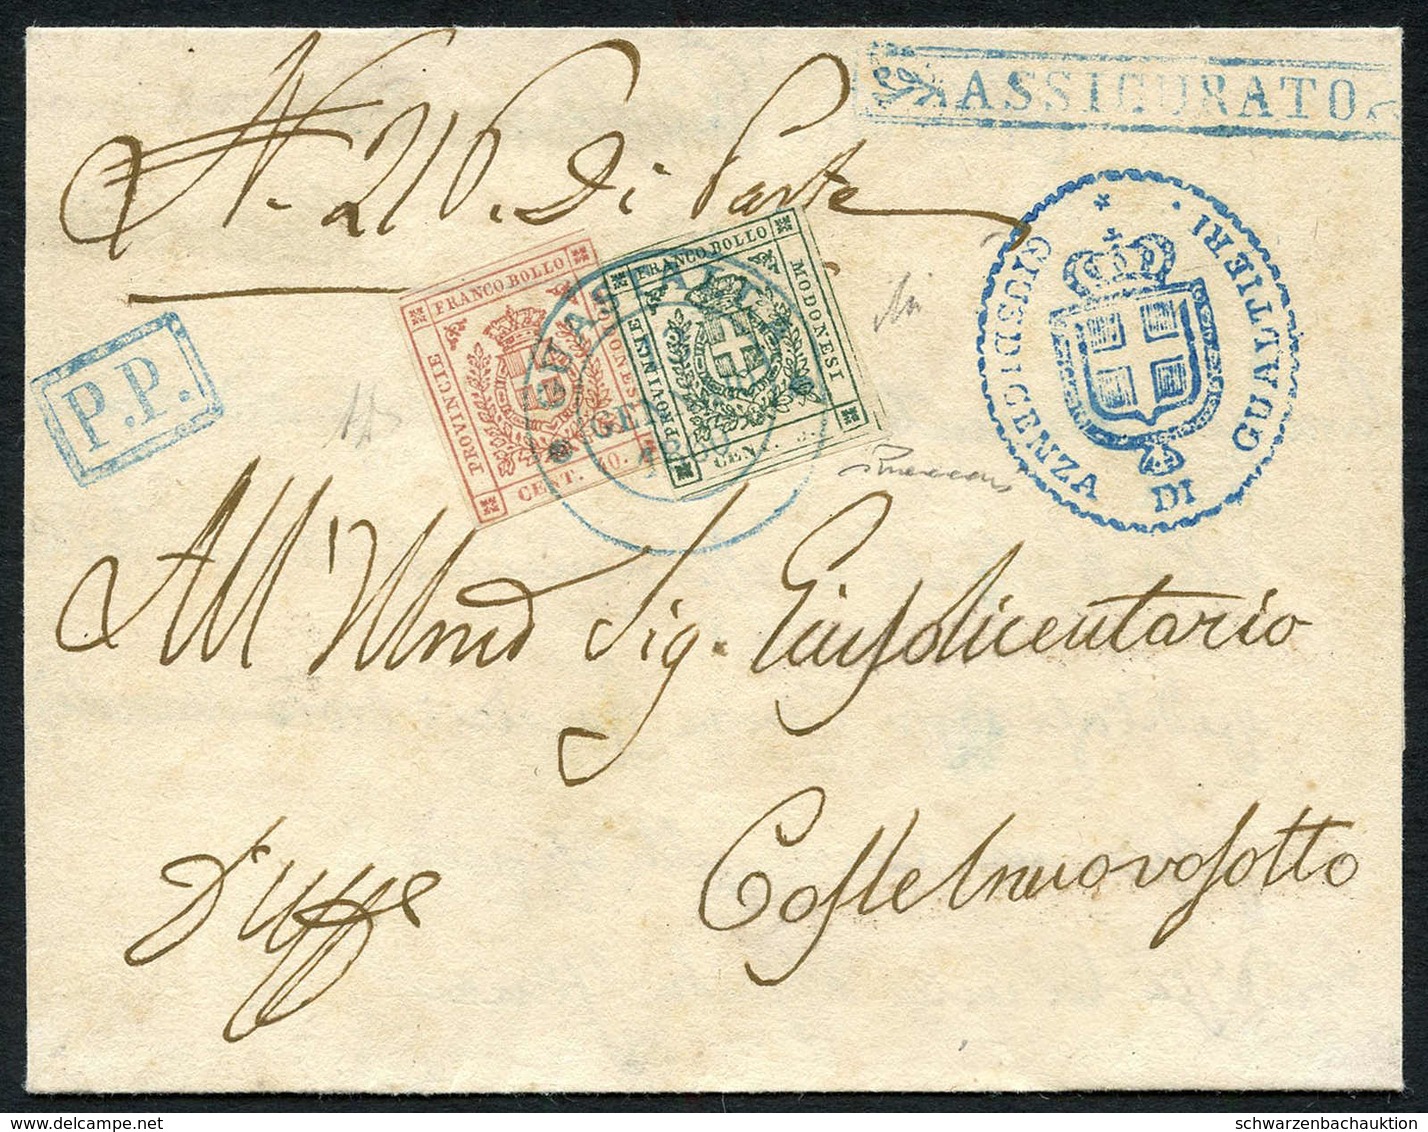 ASSICURATO
N. 216. Di Parte
GIUSDICENZA DI GUALTIERI
P.P.
FRANCO BOLLO
PROVINCIE
MODONESI
CENT. 40.
FRANCO BOLLO
PROVINCIE
MODONESI
CEN
GUASTALLA
GEN
1860
All' Illmo Sig. Giusdicentario
D'uffo Castelnuovosotto
delcampe.net
schwarzenbachauktion